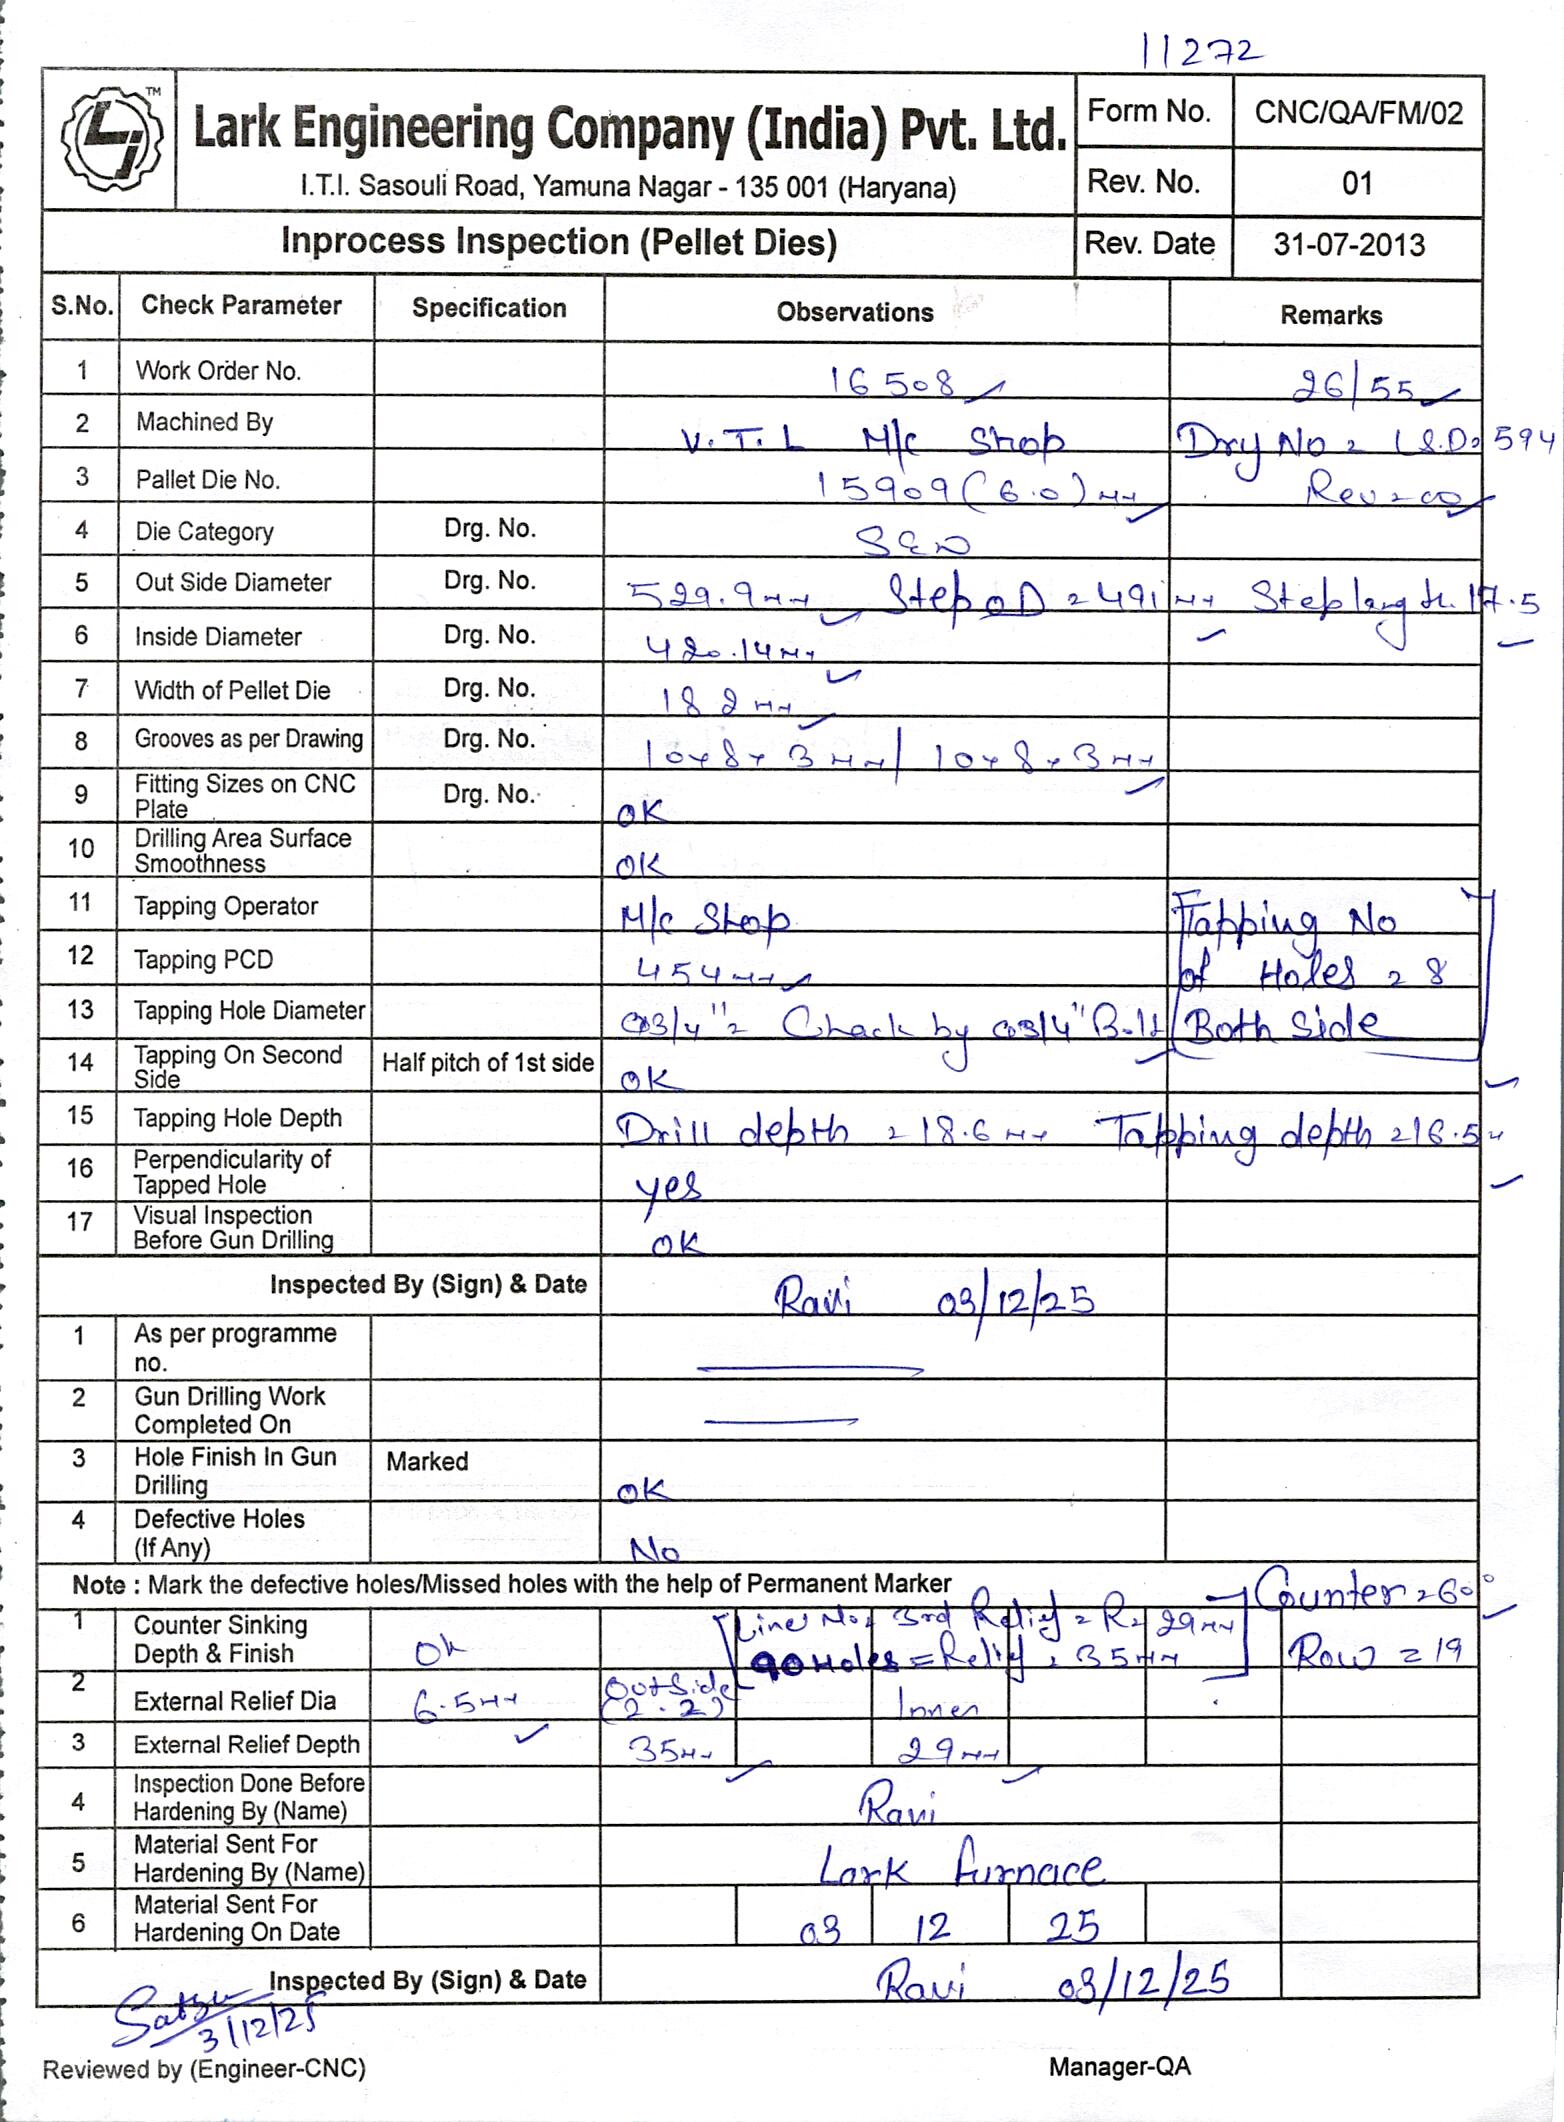 11272
TM
Lark Engineering Company (India) Pvt. Ltd.
I.T.I. Sasouli Road, Yamuna Nagar - 135 001 (Haryana)
Form No. CNC/QA/FM/02
Rev. No. 01
Inprocess Inspection (Pellet Dies) Rev. Date 31-07-2013
S.No. Check Parameter Specification Observations Remarks
1 Work Order No. 16508 26/55
2 Machined By V.T.L M/c Shop Dry No = LS.D=594
3 Pallet Die No. 15909 (6.0) mm Rev=00
4 Die Category Drg. No.
5 Out Side Diameter Drg. No. 529.9mm Step OD = 491mm Step length. 17.5
6 Inside Diameter Drg. No. 420.14mm
7 Width of Pellet Die Drg. No. 182mm
8 Grooves as per Drawing Drg. No. 10x8x3mm/10x8x3mm
9 Fitting Sizes on CNC Plate Drg. No. OK
10 Drilling Area Surface Smoothness OK
11 Tapping Operator M/c Shop Tapping No
12 Tapping PCD 454mm of Holes = 8
13 Tapping Hole Diameter Ø3/4"= Chack by Ø3/4" Bolt Both Side
14 Tapping On Second Side Half pitch of 1st side OK
15 Tapping Hole Depth Drill depth = 18.6mm Tapping depth = 16.5
16 Perpendicularity of Tapped Hole yes
17 Visual Inspection Before Gun Drilling OK
Inspected By (Sign) & Date Ravi 03/12/25
1 As per programme no.
2 Gun Drilling Work Completed On
3 Hole Finish In Gun Drilling Marked OK
4 Defective Holes (If Any) No
Note : Mark the defective holes/Missed holes with the help of Permanent Marker Counter=60°
1 Counter Sinking Depth & Finish Ok Line No= 3rd Relief = R= 29mm
90 Holes = Relief = 35mm Row = 19
2 External Relief Dia 6.5mm Outside (2.2) Inner
3 External Relief Depth 35mm 29mm
4 Inspection Done Before Hardening By (Name) Ravi
5 Material Sent For Hardening By (Name) Lark furnace
6 Material Sent For Hardening On Date 03 12 25
Inspected By (Sign) & Date Ravi 03/12/25
3/12/25
Reviewed by (Engineer-CNC) Manager-QA